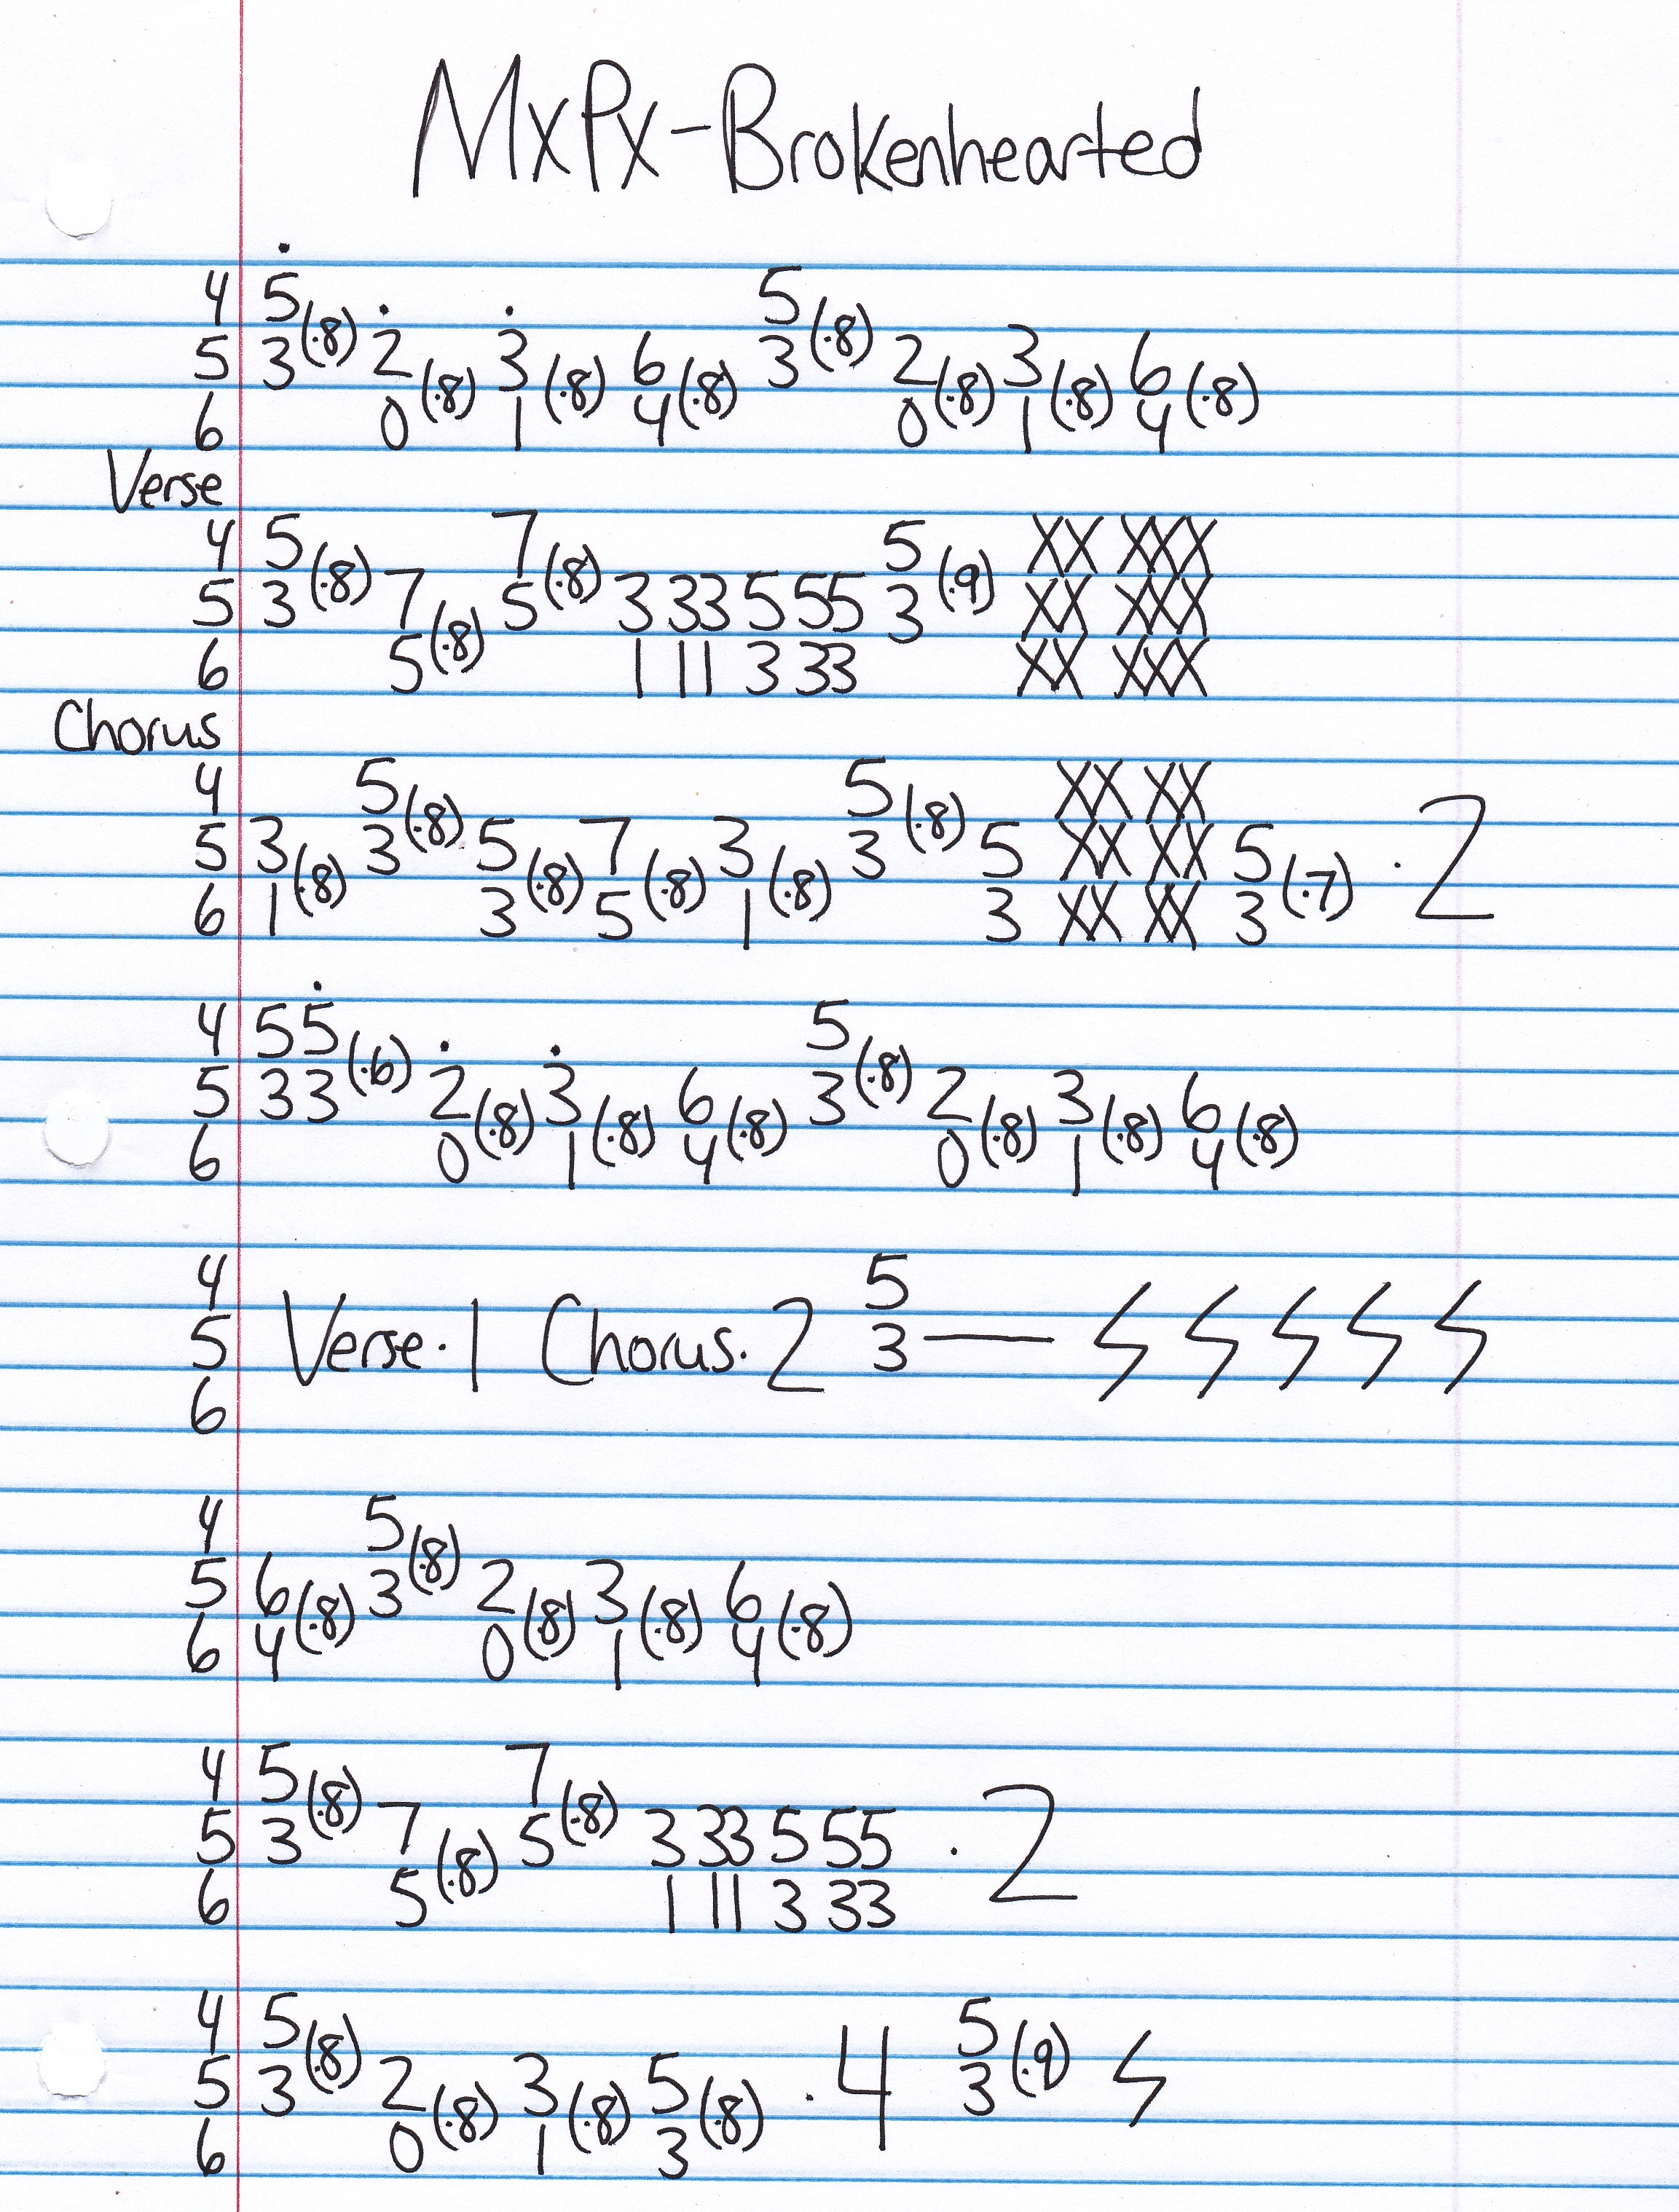 MxPx-Brokenhearted
4 5 5
5 3(·8) 2 3 6 3(·8) 2 3 6
6 0(·8) 1(·8) 4(·8) 0(·8) 1(·8) 4(·8)
Verse
4 5 7 5 XX XXX
5 3(·8) 7 5(·8) 3 33 5 55 3(·9) XX XXX
6 5(·8) 1 11 3 33 XX XXX
Chorus
4 5 5 XX XX
5 3 3(·8) 5 7 3 3(·8) 5 XX XX 5 · 2
6 1(·8) 3(·8) 5(·8) 1(·8) 3 XX XX 3(·7)
4 55 5
5 33(·6) 2 3 6 3(·8) 2 3 6
6 0(·8) 1(·8) 4(·8) 0(·8) 1(·8) 4(·8)
4 5
5 Verse·1 Chorus·2 3
6
4 5
5 6 3(·8) 2 3 6
6 4(·8) 0(·8) 1(·8) 4(·8)
4 5 7
5 3(·8) 7 5(·8) 3 33 5 55 · 2
6 5(·8) 1 11 3 33
4 5 5
5 3(·8) 2 3 5 · 4 3(·9)
6 0(·8) 1(·8) 3(·8)